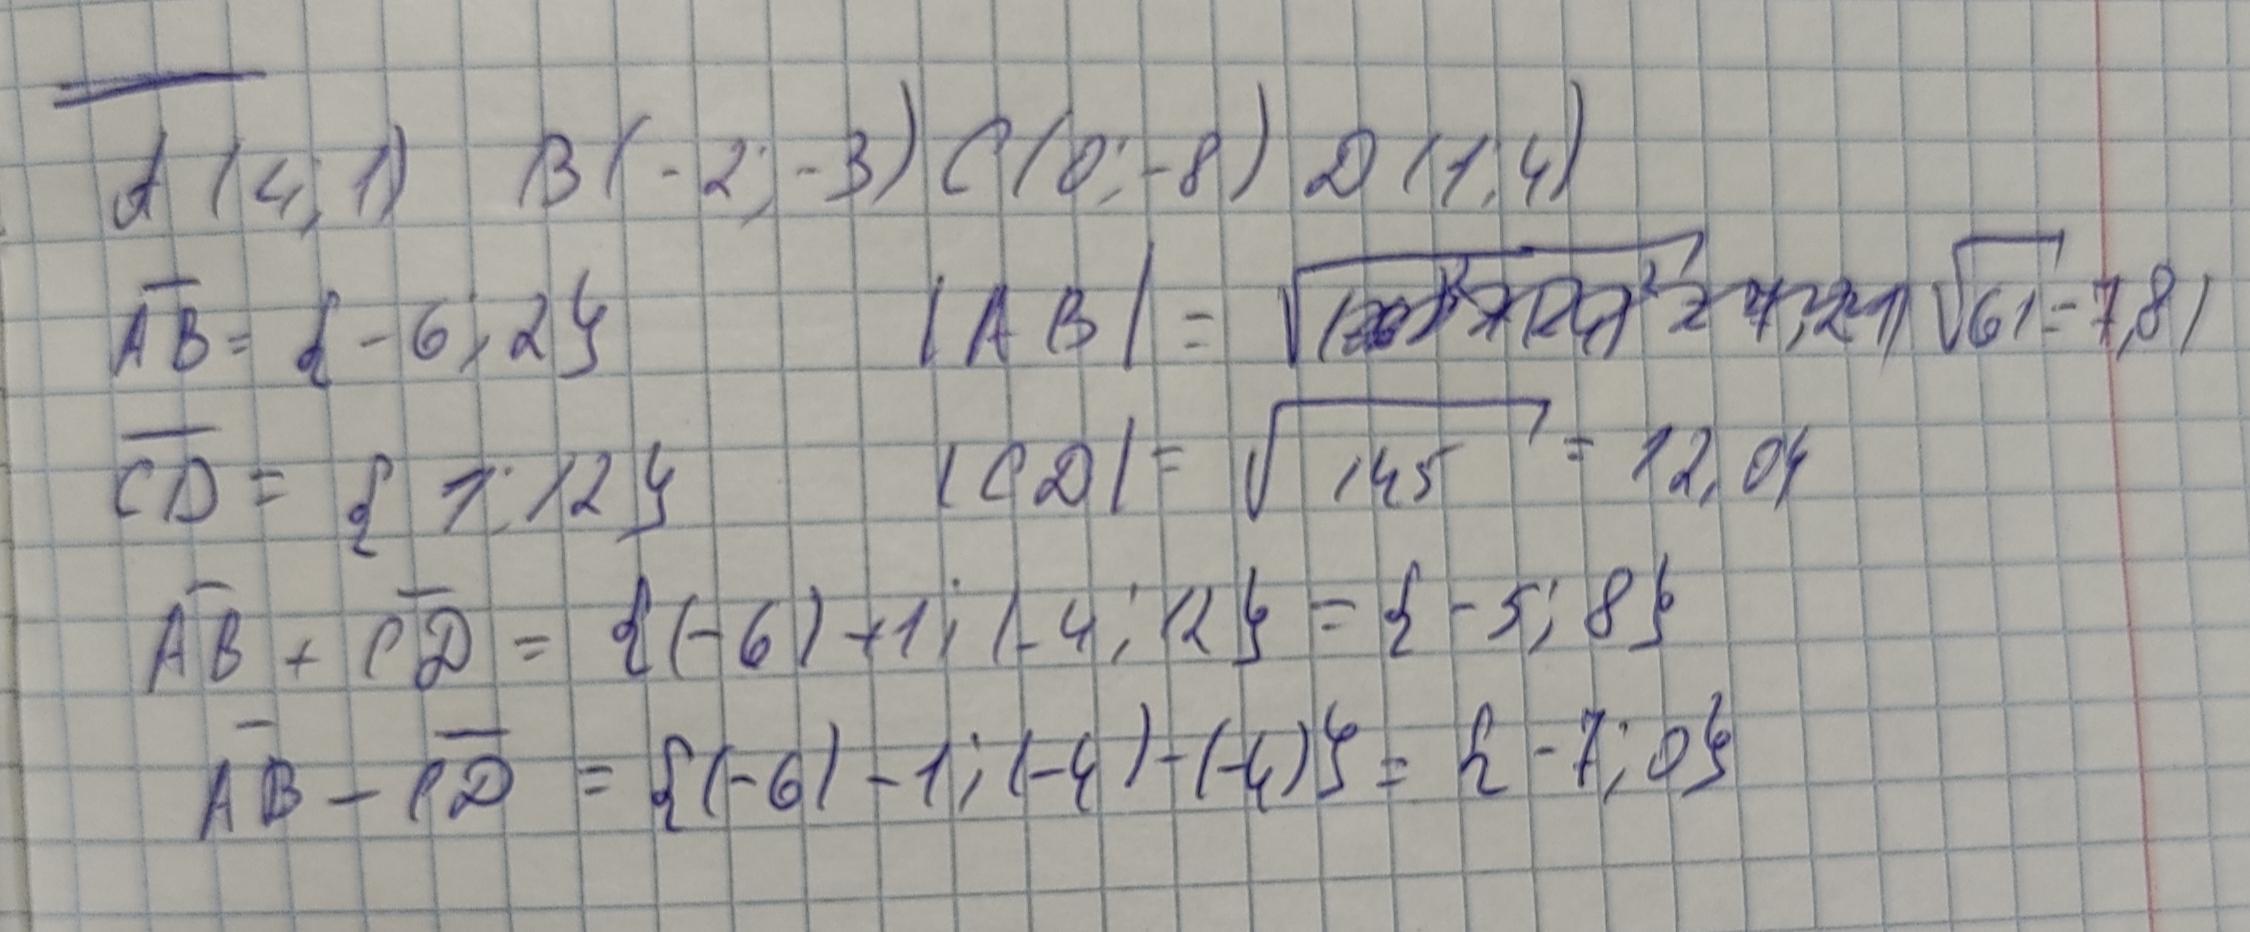 A (4; 1) B (-2; -3) C (0; -8) D (1; 4)
AB = {-6; 2} |AB| = √61 = 7,81
CD = {1; 12} |CD| = √145 = 12,04
AB + CD = {(-6) + 1; (-4; 12} = {-5; 8}
AB - CD = {(-6) - 1; (-4) - (-4)} = {-7; 0}